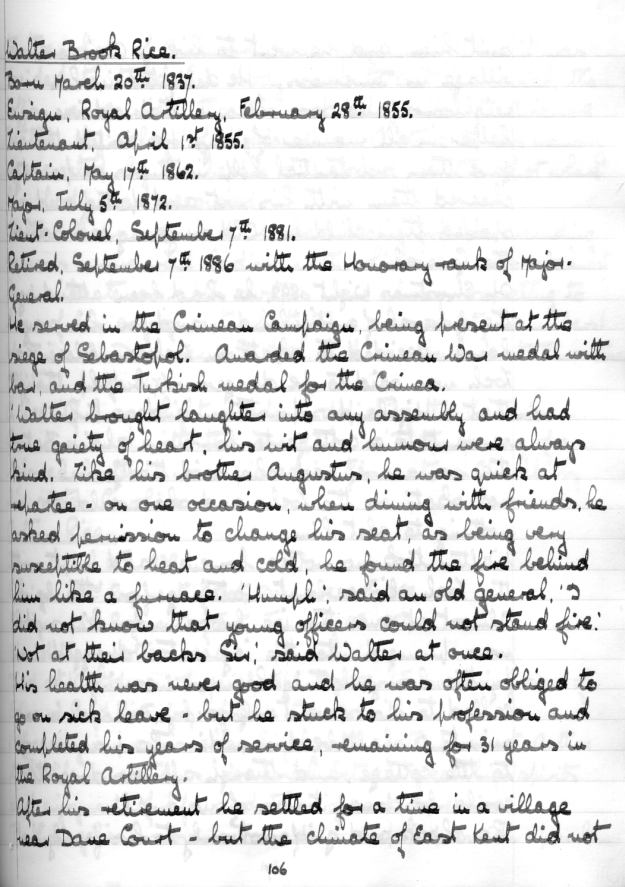 Walter Brook Rice.
Born March 20th 1837.
Ensign, Royal Artillery, February 28th 1855.
Lieutenant, April 1st 1855.
Captain, May 17th 1862.
Major, July 5th 1872.
Lieut-Colonel, September 7th 1881.
Retired, September 7th 1886 with the Honorary rank of Major-
General.
He served in the Crimean Campaign, being present at the
siege of Sebastopol. Awarded the Crimean War medal with
bar, and the Turkish medal for the Crimea.
'Walter brought laughter into any assembly and had
true gaiety of heart, his wit and humour were always
kind. Like his brother Augustus, he was quick at
repartee - on one occasion, when dining with friends, he
asked permission to change his seat, as being very
susceptible to heat and cold, he found the fire behind
him like a furnace. 'Humph', said an old general, 'I
did not know that young officers could not stand fire.'
'Not at their backs Sir,' said Walter at once.
His health was never good and he was often obliged to
go on sick leave - but he stuck to his profession and
completed his years of service, remaining for 31 years in
the Royal Artillery.
After his retirement he settled for a time in a village
near Dane Court - but the climate of East Kent did not
106